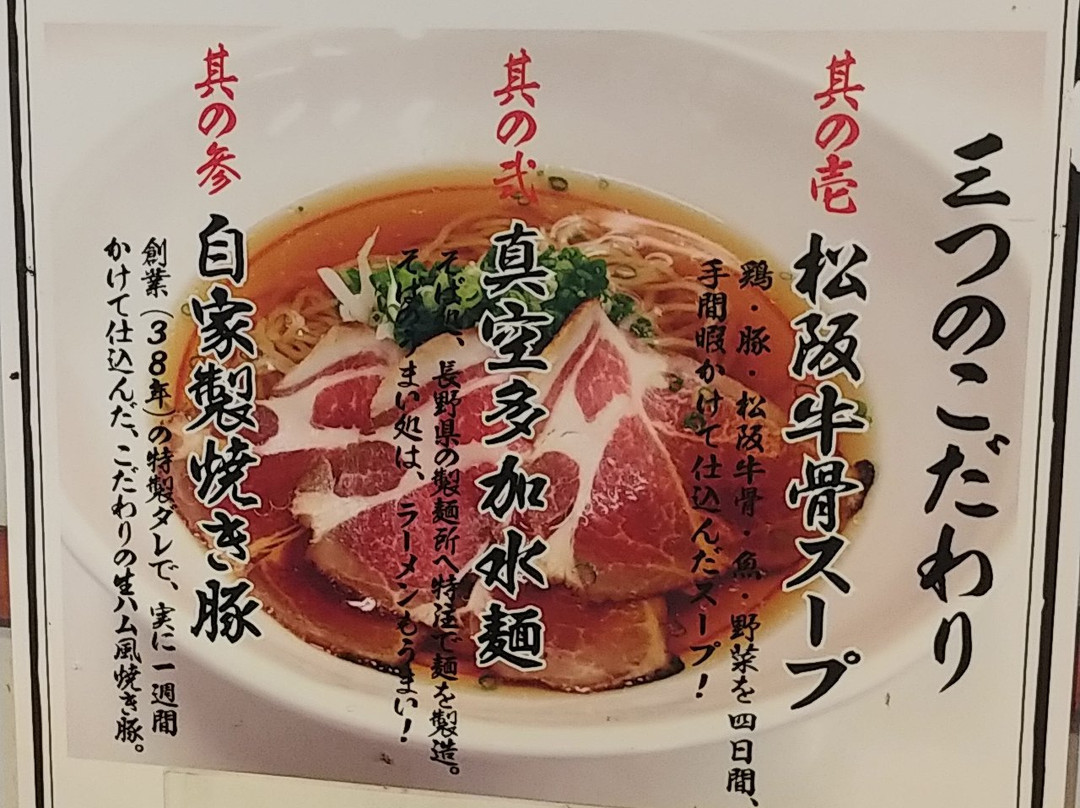 三つのこだわり
其の壱
松阪牛骨スープ
鶏・豚・松阪牛骨・魚・野菜を四日間、
手間暇かけて仕込んだスープ！
其の弐
真空多加水麺
長野県の製麺所へ特注で麺を製造。
まい処は、ラーメンもうまい！
其の参
自家製焼き豚
創業（38年）の特製ダレで、実に一週間
かけて仕込んだ、こだわりの生ハム風焼き豚。